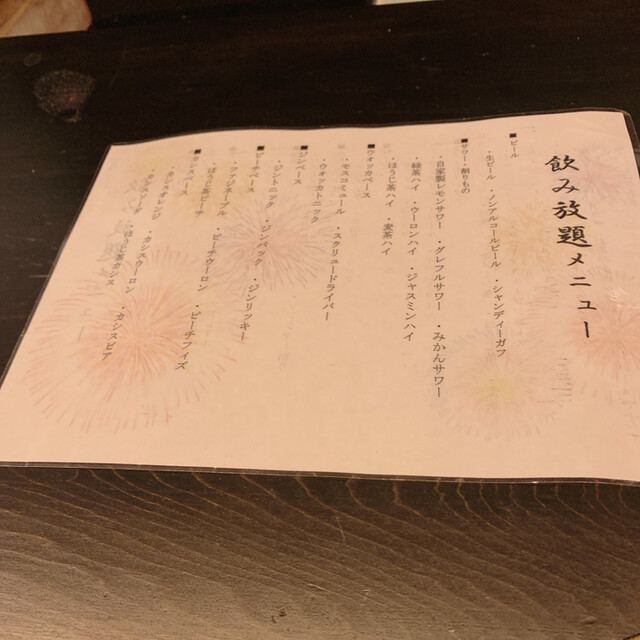 飲み放題メニュー
■ビール
・生ビール ・ノンアルコールビール ・シャンディーガフ
■サワー・割りもの
・自家製レモンサワー ・グレフルサワー ・みかんサワー
・緑茶ハイ ・ウーロンハイ ・ジャスミンハイ
・ほうじ茶ハイ ・麦茶ハイ
■ウオッカベース
・モスコミュール ・スクリュードライバー
・ウオッカトニック
■ジンベース
・ジントニック ・ジンバック ・ジンリッキー
■ピーチベース
・ファジーネーブル ・ピーチウーロン ・ピーチフィズ
・ほうじ茶ピーチ
■カシスベース
・カシスオレンジ ・カシスウーロン ・カシスビア
・カシスソーダ ・ほうじ茶カシス